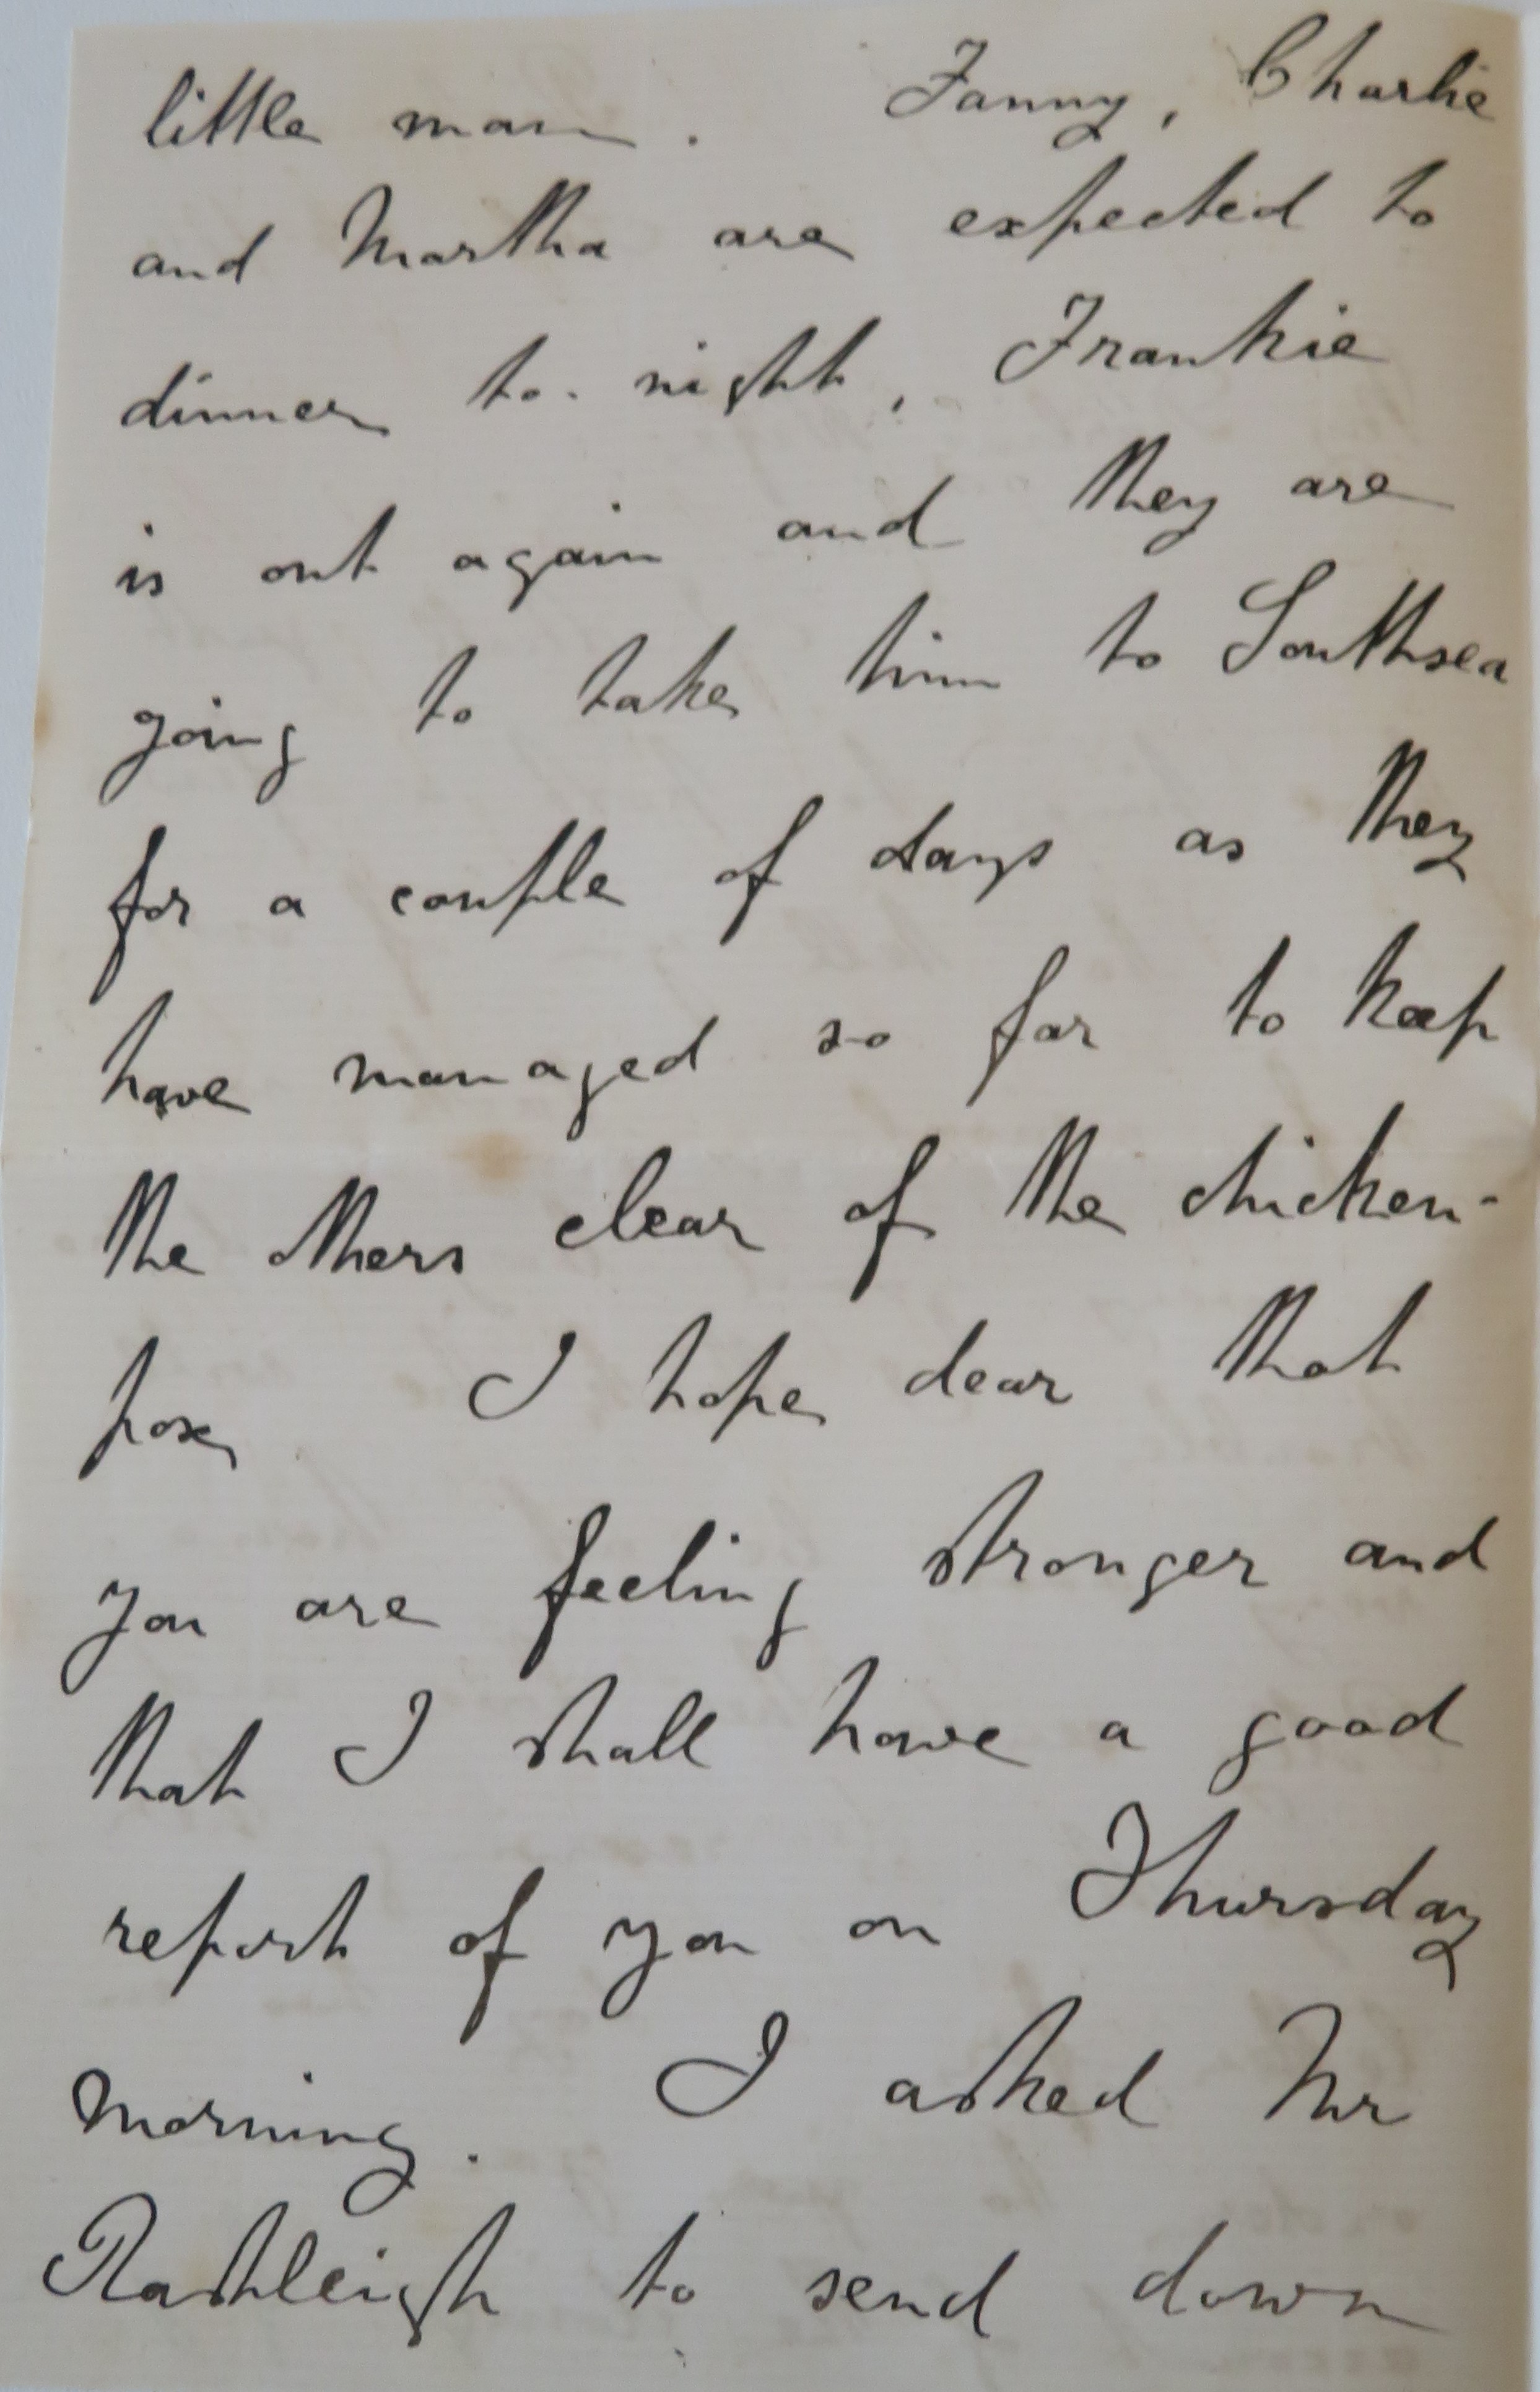 little man. Fanny, Charlie
and Martha are expected to
dinner to-night, Frankie
is out again and they are
going to take him to Southsea
for a couple of days as they
have managed so far to keep
the others clear of the chicken-
pox I hope dear that
you are feeling stronger and
that I shall have a good
report of you on Thursday
morning. I asked Mr
Rashleigh to send down